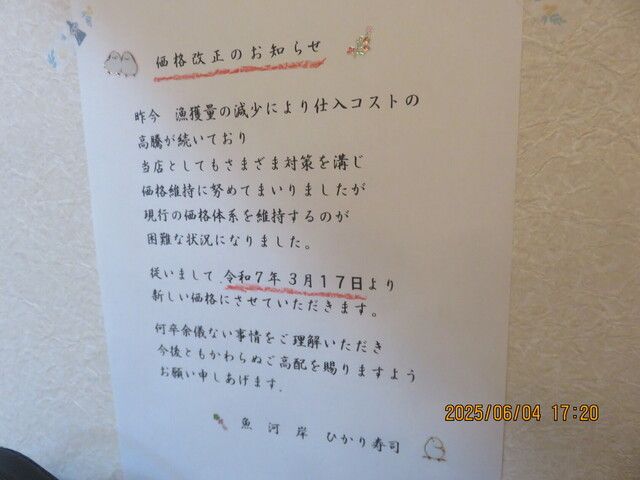 価格改正のお知らせ
昨今 漁獲量の減少により仕入コストの
高騰が続いており
当店としてもさまざま対策を溝じ
価格維持に努めてまいりましたが
現行の価格体系を維持するのが
困難な状況になりました。
従いまして.令和7年3月17日より
新しい価格にさせていただきます。
何卒余儀ない事情をご理解いただき
今後ともかわらぬご高配を賜りますよう
お願い申しあげます.
魚河岸 ひかり寿司
2025/06/04 17:20